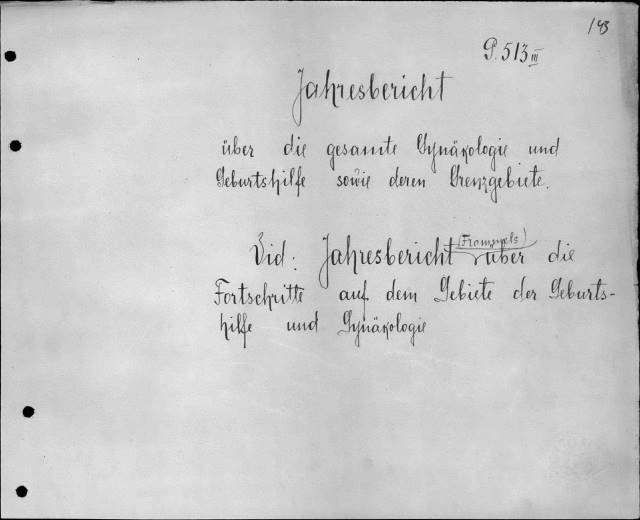 143
P. 513 III
Jahresbericht
über die gesamte Gynäkologie und
Geburtshilfe sowie deren Grenzgebiete.
Vid: Jahresbericht (Frommels) über die
Fortschritte auf dem Gebiete der Geburts-
hilfe und Gynäkologie